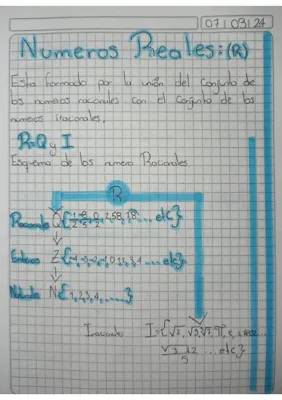 07 | 03 | 24
Numeros Reales: (R)
Esta formado por la unión del conjunto de
los numeros racionales con el conjunto de los
numeros irracionales.
R=Q y I
Esquema de los numero Racionales
R
Racionales Q { ... etc}
Enteros Z { ... etc}
Naturales N {1, 2, 3, 4, ......}
Irracionales I = {√2, √3, √7, π, e,
... etc}
5